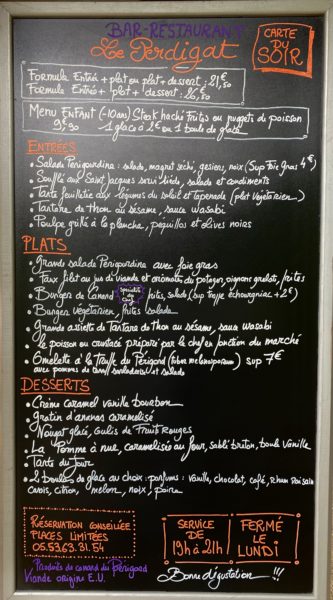 BAR-RESTAURANT
Le Perdigat
CARTE
DU
SOIR
Formule Entré + plat ou plat + dessert : 21,50€
Formule Entré + plat + dessert : 26,50
Menu ENFANT (-10ans) Steak haché frites ou nugets de poisson
9€,90 1 glace à 2€ ou 1 boule de glace
ENTRÉES
• Salade Périgourdine : salade, magret séché, gesiers, noix (Sup Foie Gras 4€)
• Soufflé aux Saint Jacques servi tiède, salade et condiments
• Tarte feuilletée aux légumes du soleil et tapenade (plat Vegetarien)
• Tartare de thon au sésame, sauce wasabi
• Poulpe grillé à la planche, pequillos et olives noires
PLATS
• Grande salade Périgourdine avec foie gras
• Faux filet au jus de viande et aromates du potager, oignons grelots, frites
• Burger de Canard frites, salade (sup +2€)
• Burger Végétarien, frites salade
• Grande assiette de Tartare de Thon au sésame, sauce wasabi
• le poisson ou crustacé préparé par le chef en fonction du marché
• Omelette à la Truffe du Périgord (tuber melanosporum) sup 7€
avec pommes de terre sarladaises et salade
DESSERTS
• Crème caramel vanille bourbon
• Gratin d'ananas caramélisé
• Nougat glacé, Coulis de Fruit Rouges
• La Pomme à nue, caramelisée au four, sablé breton, boule Vanille
• Tarte du Jour
• 2 boules de glace au choix : parfums : vanille, chocolat, café, Rhum Raisin
citron, melon, noix, poire
RÉSERVATION CONSEILLÉE
PLACES LIMITÉES
05.53.63.31.54
SERVICE
DE
19h à 21h
FERMÉ
LE
LUNDI
Produits de canard du Périgord
Viande origine E.U.
Bonne dégustation !!!